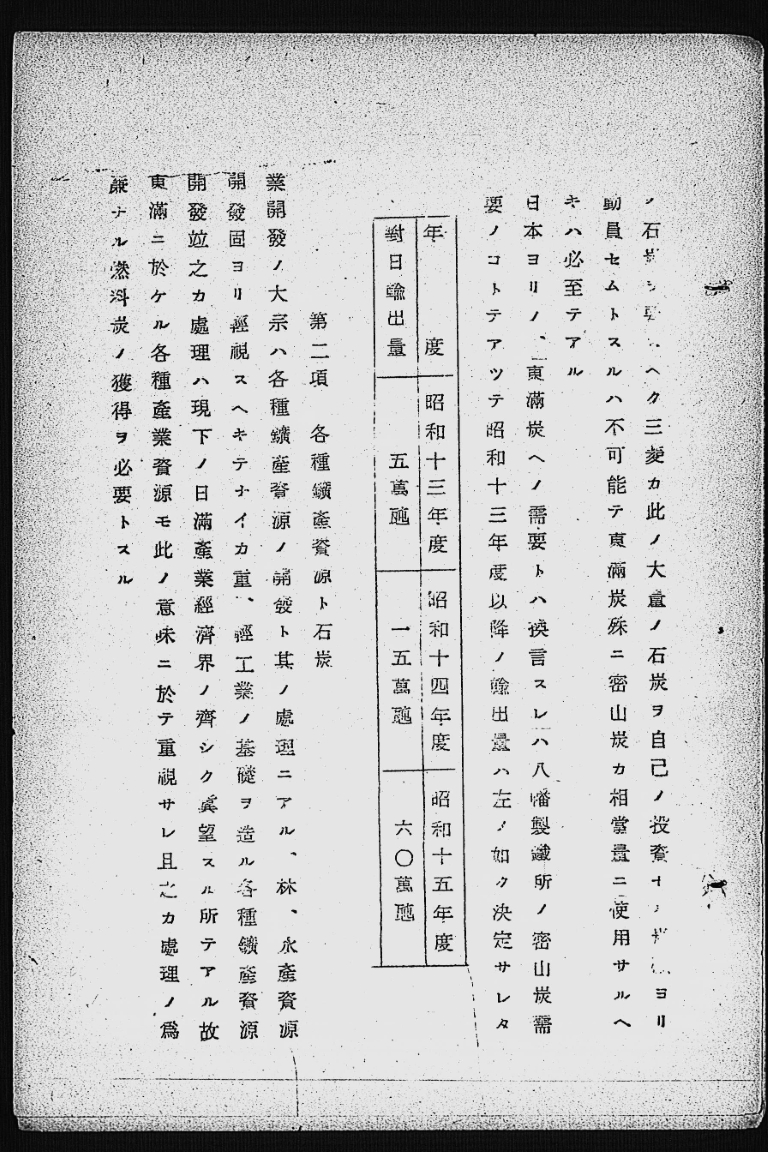 ノ石炭ヘク三菱カ此ノ大量ノ石炭ヲ自己ノ投資ヨリ
動員セムトスルハ不可能テ東滿炭殊ニ密山炭カ相當量ニ使用サルヘ
キハ必至テアル
日本ヨリノ、東滿炭ヘノ需要トハ換言スレハ八幡製鐵所ノ密山炭需
要ノコトテアツテ昭和十三年度以降ノ輸出量ハ左ノ如ク決定サレタ
年度 昭和十三年度 昭和十四年度 昭和十五年度
對日輸出量 五萬瓲 一五萬瓲 六〇萬瓲
第二項 各種鑛產資源ト石炭
業開發ノ大宗ハ各種鑛產資源ノ開發ト其ノ處理ニアル、林、水產資源
開發固ヨリ輕視スヘキテナイカ重、輕工業ノ基礎ヲ造ル各種鑛產資源
開發竝之カ處理ハ現下ノ日滿產業經濟界ノ齊シク冀望スル所テアル故
東滿ニ於ケル各種產業資源モ此ノ意味ニ於テ重視サレ且之カ處理ノ爲
廉ナル燃料炭ノ獲得ヲ必要トスル